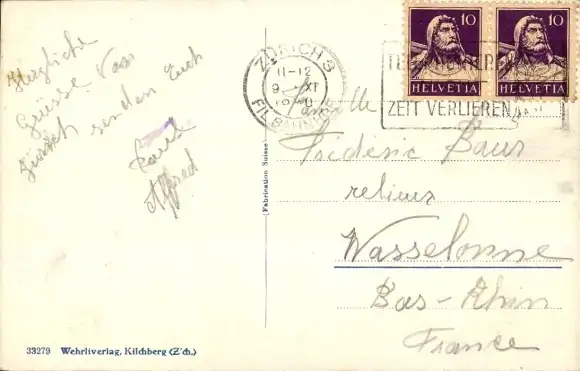 Herzliche
Grüsse von
Zürich senden Euch
Paul
Alfred
10
10
HELVETIA
HELVETIA
ZÜRICH 3
11-12
9 XI
ZEIT VERLIEREN
Famille
Fréderic Baur
relieur
Wasselonne
Bas-Rhin
France
(Fabrication Suisse)
33279 Wehrliverlag, Kilchberg (Z'ch.)